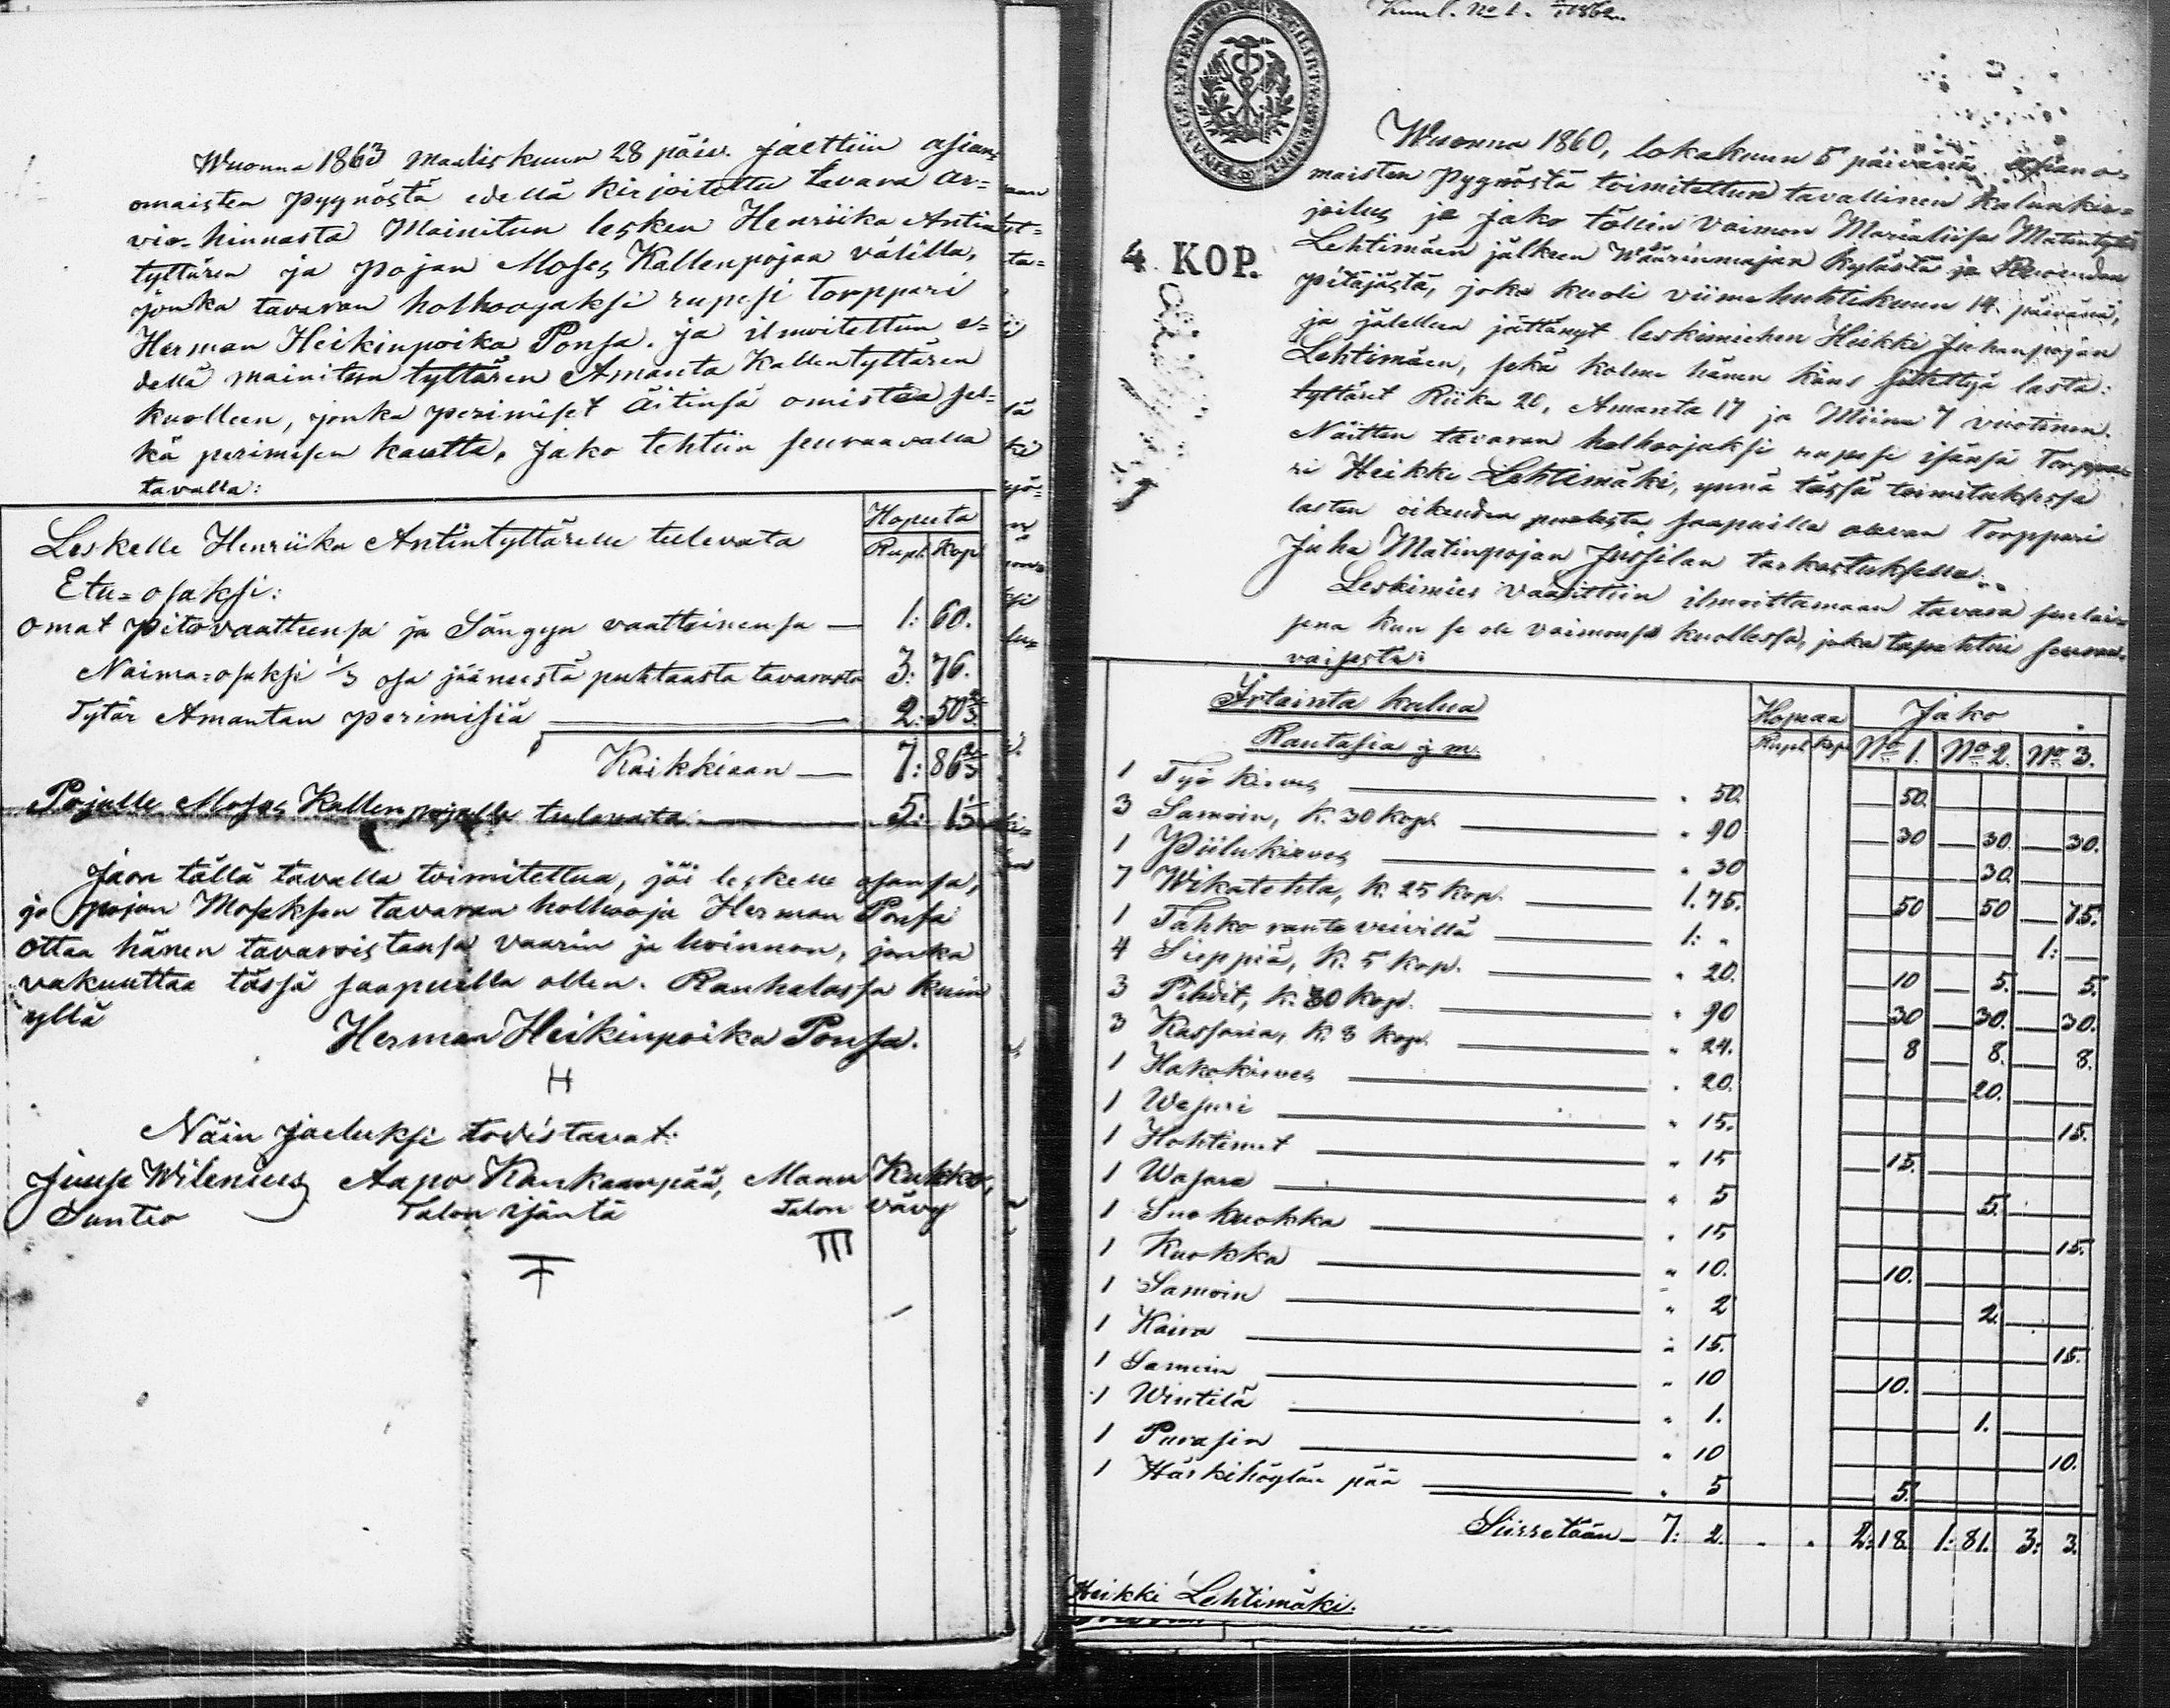 Wuonna 1863 Maaliskuun 28 päiv. jaettiin asian-
omaisten pyynöstä edellä kirjoitettu tavara ar-
vio-hinnasta Mainitun lesken Henriika Antin
tyttären ja pojan Moses Kallenpojan välillä,
jonka tavaran holhoojaksi rupesi torppari
Herman Heikinpoika Ponsa. ja ilmoitettiin e-
dellä mainitun tyttären Amanta Kallentyttären
kuolleen, jonka perimiset äitinsä omistaa sel-
kä perimisen kautta. Jako tehtiin seuraavalla
tavalla:
Hopeata
Rupl. Kop
Leskelle Henriika Antintyttärelle tulevata
Etu-osaksi:
omat pitovaatteensa ja Sängyn vaatteinensa — 1: 60.
Naima-osaksi 1/3 osa jääneestä puhtaasta tavarasta 3: 76.
Tytär Amantan perimisiä — 2: 50 2/3
Kaikkiaan — 7: 86 2/3
Pojalle Moses Kallenpojalle tulevata — 5: 1 1/3
Jaon tällä tavalla toimitettua, jäi leskelle osansa,
ja pojan Moseksen tavaran holhooja Herman Ponsa
ottaa hänen tavaroistansa vaarin ja hoinnon, jonka
vakuuttaa tässä saapuilla ollen. Rauhalassa kuin
yllä
Herman Heikinpoika Ponsa.
H
Näin jaetuksi todistavat:
Juuse Wilenius Aapo Kankaanpää, Manu Kukko,
Suntio Talon isäntä Talon vävy
III
Kuul. No 1. 1862.
4 KOP.
Wuonna 1860, lokakuun 5 päivänä asiano-
maisten pyynöstä toimitettiin tavallinen kalunkir-
joitus ja jako töllin vaimon Marialiisa Matintytär
Lehtimäen jälkeen Wäärinmajan kylästä ja Ruoveden
pitäjästä, joka kuoli viime huhtikuun 14. päivänä,
ja jälelleen jättänyt leskimiehen Heikki Juhanpojan
Lehtimäen, sekä kolme hänen kans siitettyä lasta:
tyttäret Riika 20, Amanta 17 ja Miina 7 vuotinen.
Näitten tavaran holhoojaksi rupesi isänsä Torppa-
ri Heikki Lehtimäki, ynnä tässä toimituksessa
lasten oikeuden puolesta saapuilla olevan Torppari
Juha Matinpojan Jussilan tarkastuksella.
Leskimies vaadittiin ilmoittamaan tavara sellai-
sena kun se oli vaimonsa kuollessa, joka tapahtui seuraa-
vaisesta:
Irtainta kalua
Hopeaa
Jako
Rautasia j. m.
Rupl. Kop. No 1. No 2. No 3.
1 Työ kirves — " 50. 50.
3 Samoin, k. 30 kop. — " 90 30 30. 30.
1 Piilukirves — " 30 30.
7 Wikatehta, k. 25 kop. — 1. 75. 50 50 75.
1 Tahko rauta veivillä — 1: " 1:
4 Sirppiä, k. 5 kop. — " 20. 10 5. 5.
3 Pihdit, k. 30 kop. — " 90 30 30. 30.
3 Kassaria, k. 8 kop. — " 24. 8 8. 8.
1 Hakokirves — " 20. 20.
1 Wesuri — " 15. 15.
1 Hohtimet — " 15 15.
1 Wasara — " 5 5.
1 Suo kuokka — " 15 15.
1 Kuokka — " 10. 10.
1 Samoin — " 2 2.
1 Kaira — " 15. 15.
1 Samoin — " 10 10.
1 Wintilä — " 1. 1.
1 Purasin — " 10 10.
1 Härkihöylän pää — " 5 5.
Siirretään — 7: 2. " " 2: 18. 1: 81. 3: 3.
Heikki Lehtimäki.